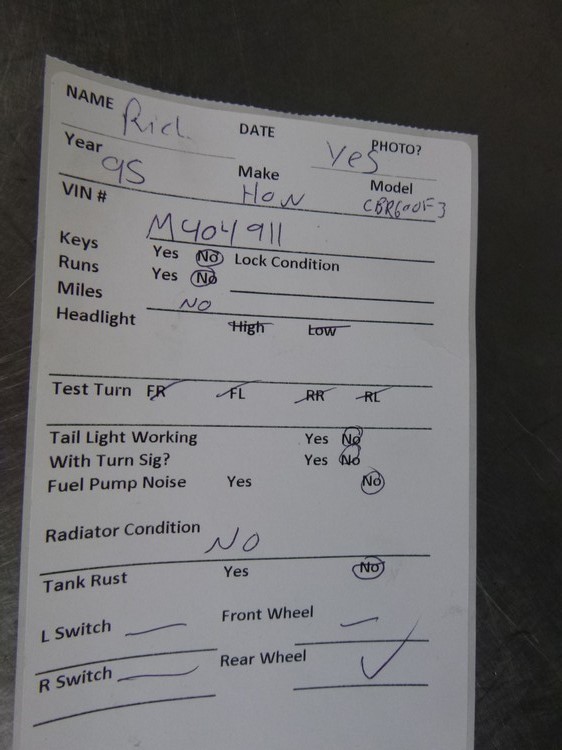 NAME Rich DATE PHOTO? Yes
Year 95 Make HON Model CBR600F3
VIN # M404911
Keys Yes No Lock Condition
Runs Yes No
Miles NO
Headlight High Low
Test Turn FR FL RR RL
Tail Light Working Yes No
With Turn Sig? Yes No
Fuel Pump Noise Yes No
Radiator Condition NO
Tank Rust Yes No
L Switch Front Wheel
R Switch Rear Wheel